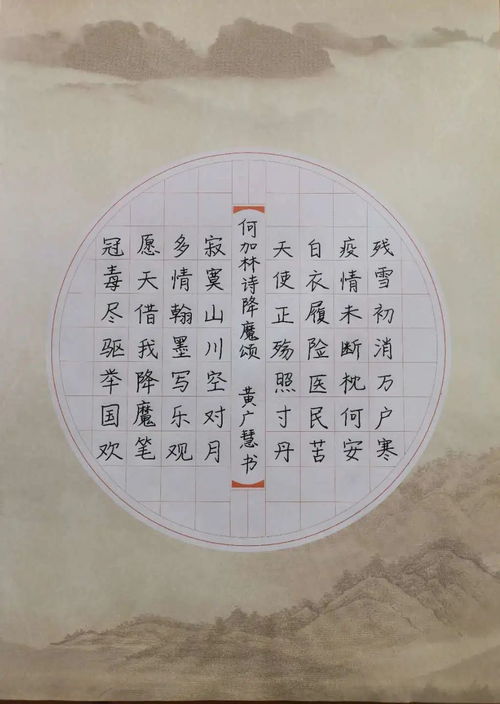 残雪初消万户寒
疫情未断枕何安
白衣履险医民苦
天使正殇照寸丹
何加林诗降魔颂 黄广慧书
寂寞山川空对月
多情翰墨写乐观
愿天借我降魔笔
冠毒尽驱举国欢